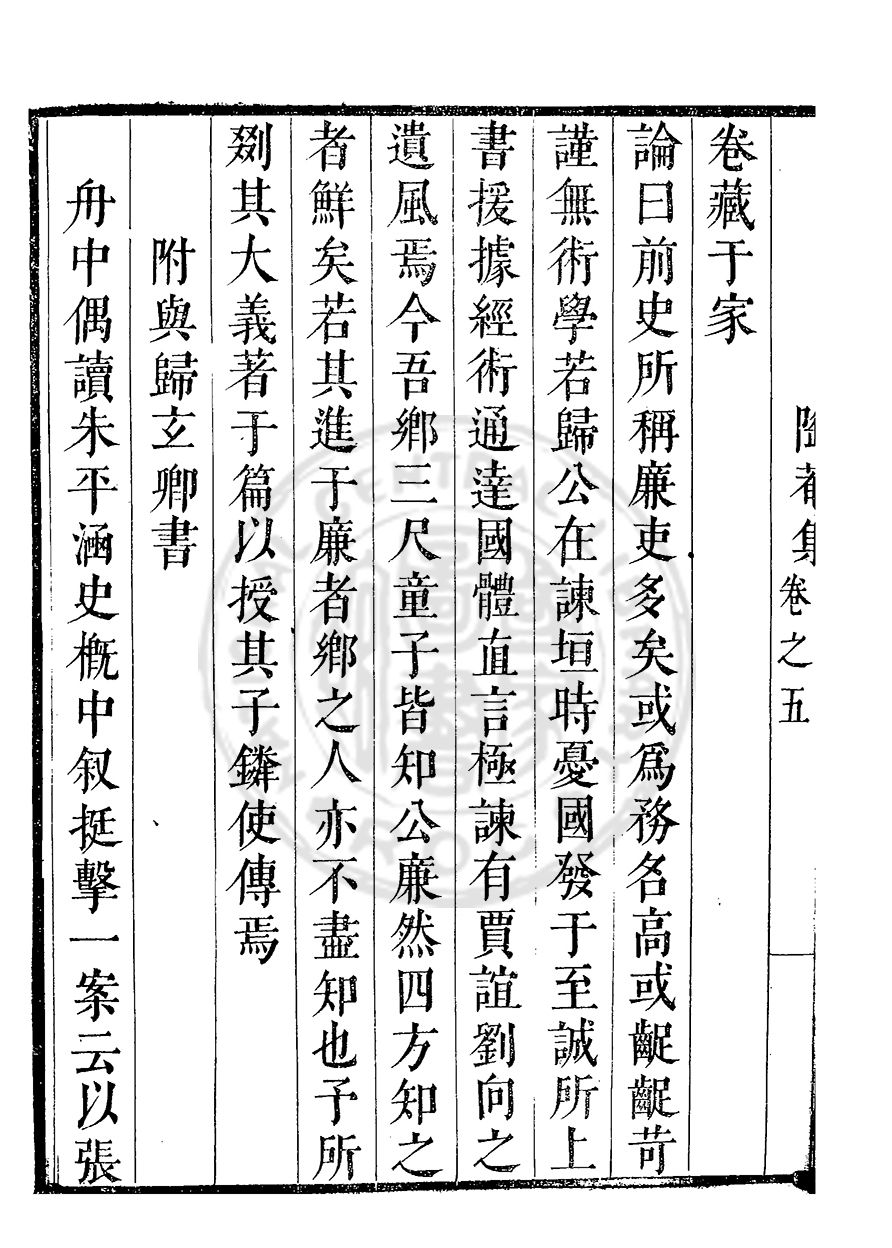 陶菴集卷之五
卷藏于家
論曰前史所稱廉吏多矣或爲務名高或齪齪苛
謹無術學若歸公在諫垣時憂國發于至誠所上
書援據經術通達國體直言極諫有賈誼劉向之
遺風焉今吾鄉三尺童子皆知公廉然四方知之
者鮮矣若其進于廉者鄉之人亦不盡知也予所
剟其大義著于篇以授其子鏻使傳焉
附與歸玄卿書
舟中偶讀朱平涵史槪中叙挺擊一案云以張